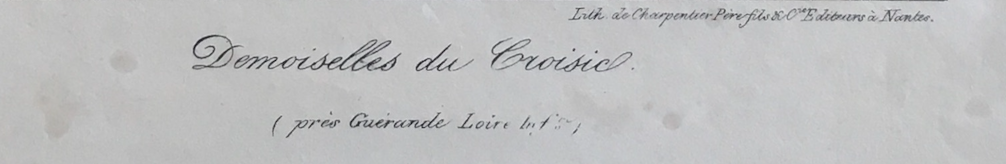 Lith. de Charpentier Père fils & Cie Editeurs à Nantes.
Demoiselles du Croisic.
( près Guérande Loire Infre )